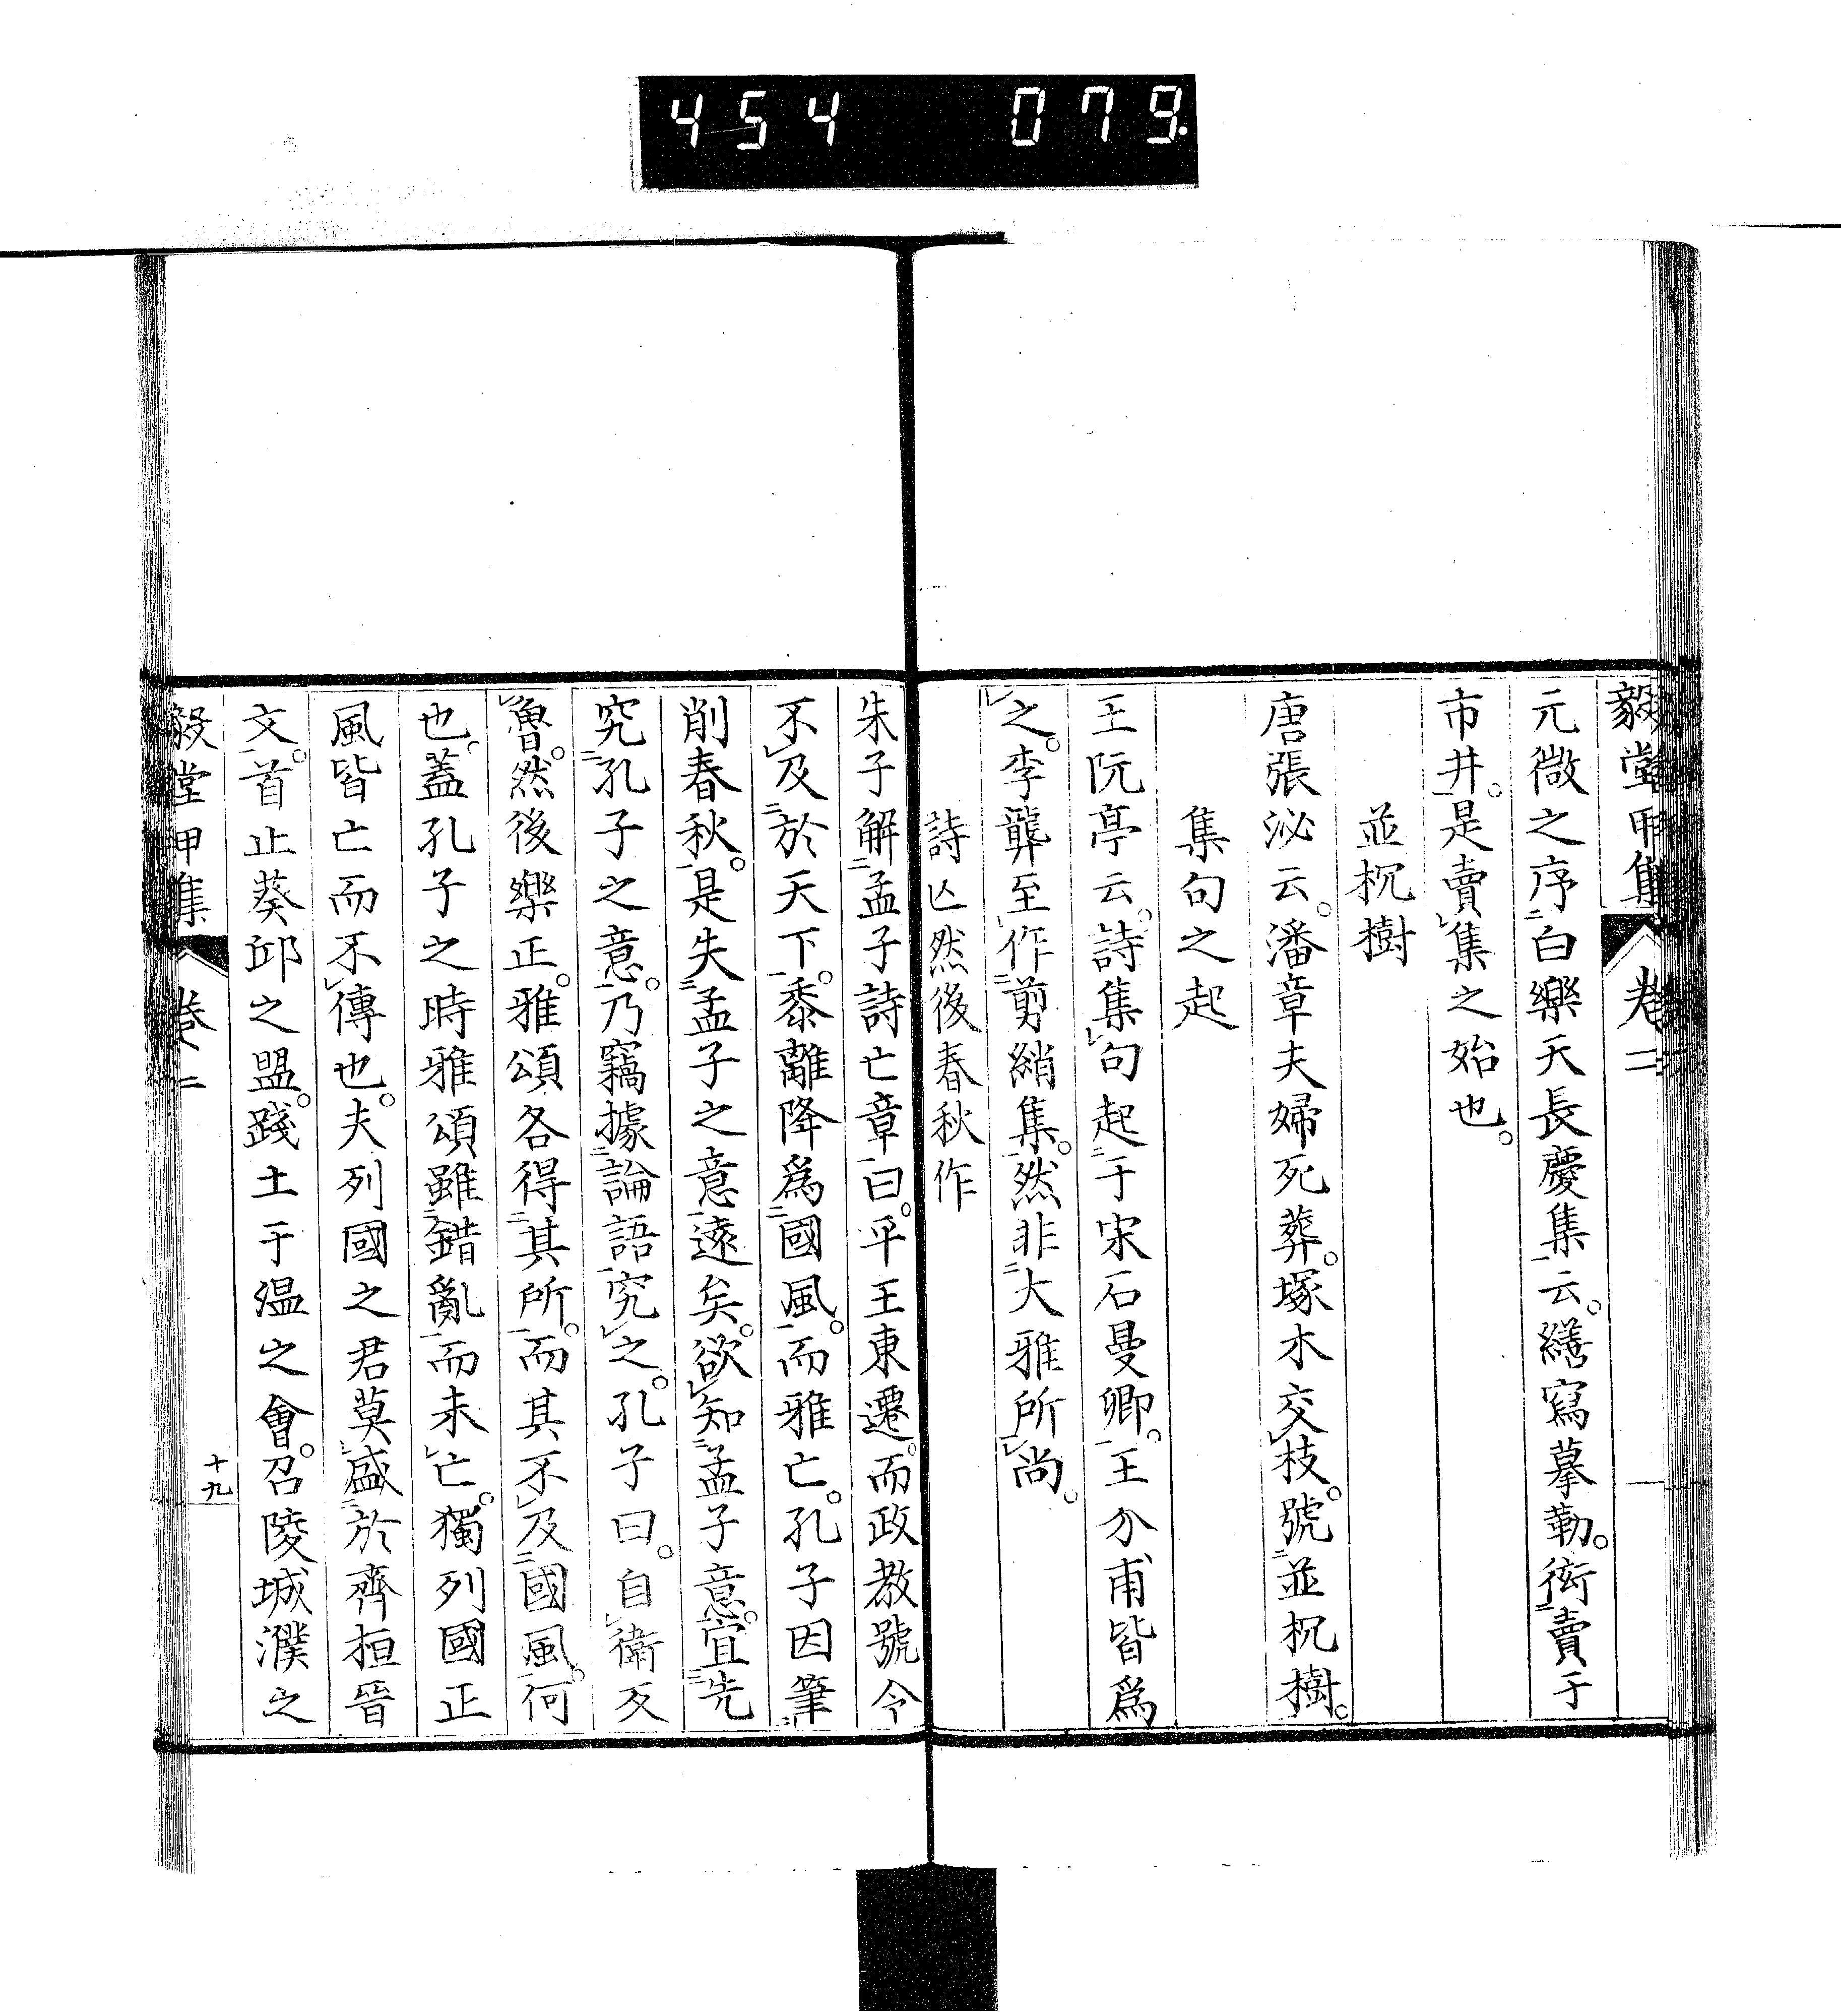 454 079
毅堂甲集 卷二
元微之序白樂天長慶集云。繕寫摹勒。衒賣于
市井。是賣集之始也。
並枕樹
唐張泌云。潘章夫婦死葬。塚木交枝。號並枕樹。
集句之起
王阮亭云。詩集句起于宋石曼卿。王介甫皆爲
之。李龏至作剪綃集。然非大雅所尚。
詩亡然後春秋作
朱子解孟子詩亡章曰。平王東遷。而政教號令
不及於天下。黍離降爲國風。而雅亡。孔子因筆
削春秋。是失孟子之意遠矣。欲知孟子意。宜先
究孔子之意。乃竊據論語究之。孔子曰。自衛反
魯。然後樂正。雅頌各得其所。而其不及國風。何
也。蓋孔子之時雅頌雖錯亂而未亡。獨列國正
風皆亡而不傳也。夫列國之君莫盛於齊桓晉
文。首止葵邱之盟。踐土于溫之會。召陵城濮之
毅堂甲集 卷二 十九